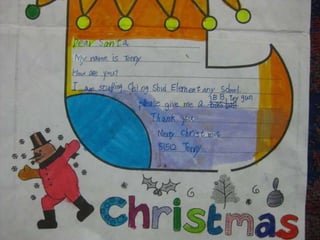 Dear Santa
My name is Terry.
How are you?
I am studying Ching Shui Elementary School.
Please give me a BB toy gun
Thank you
Merry Christmas
Terry
Christmas